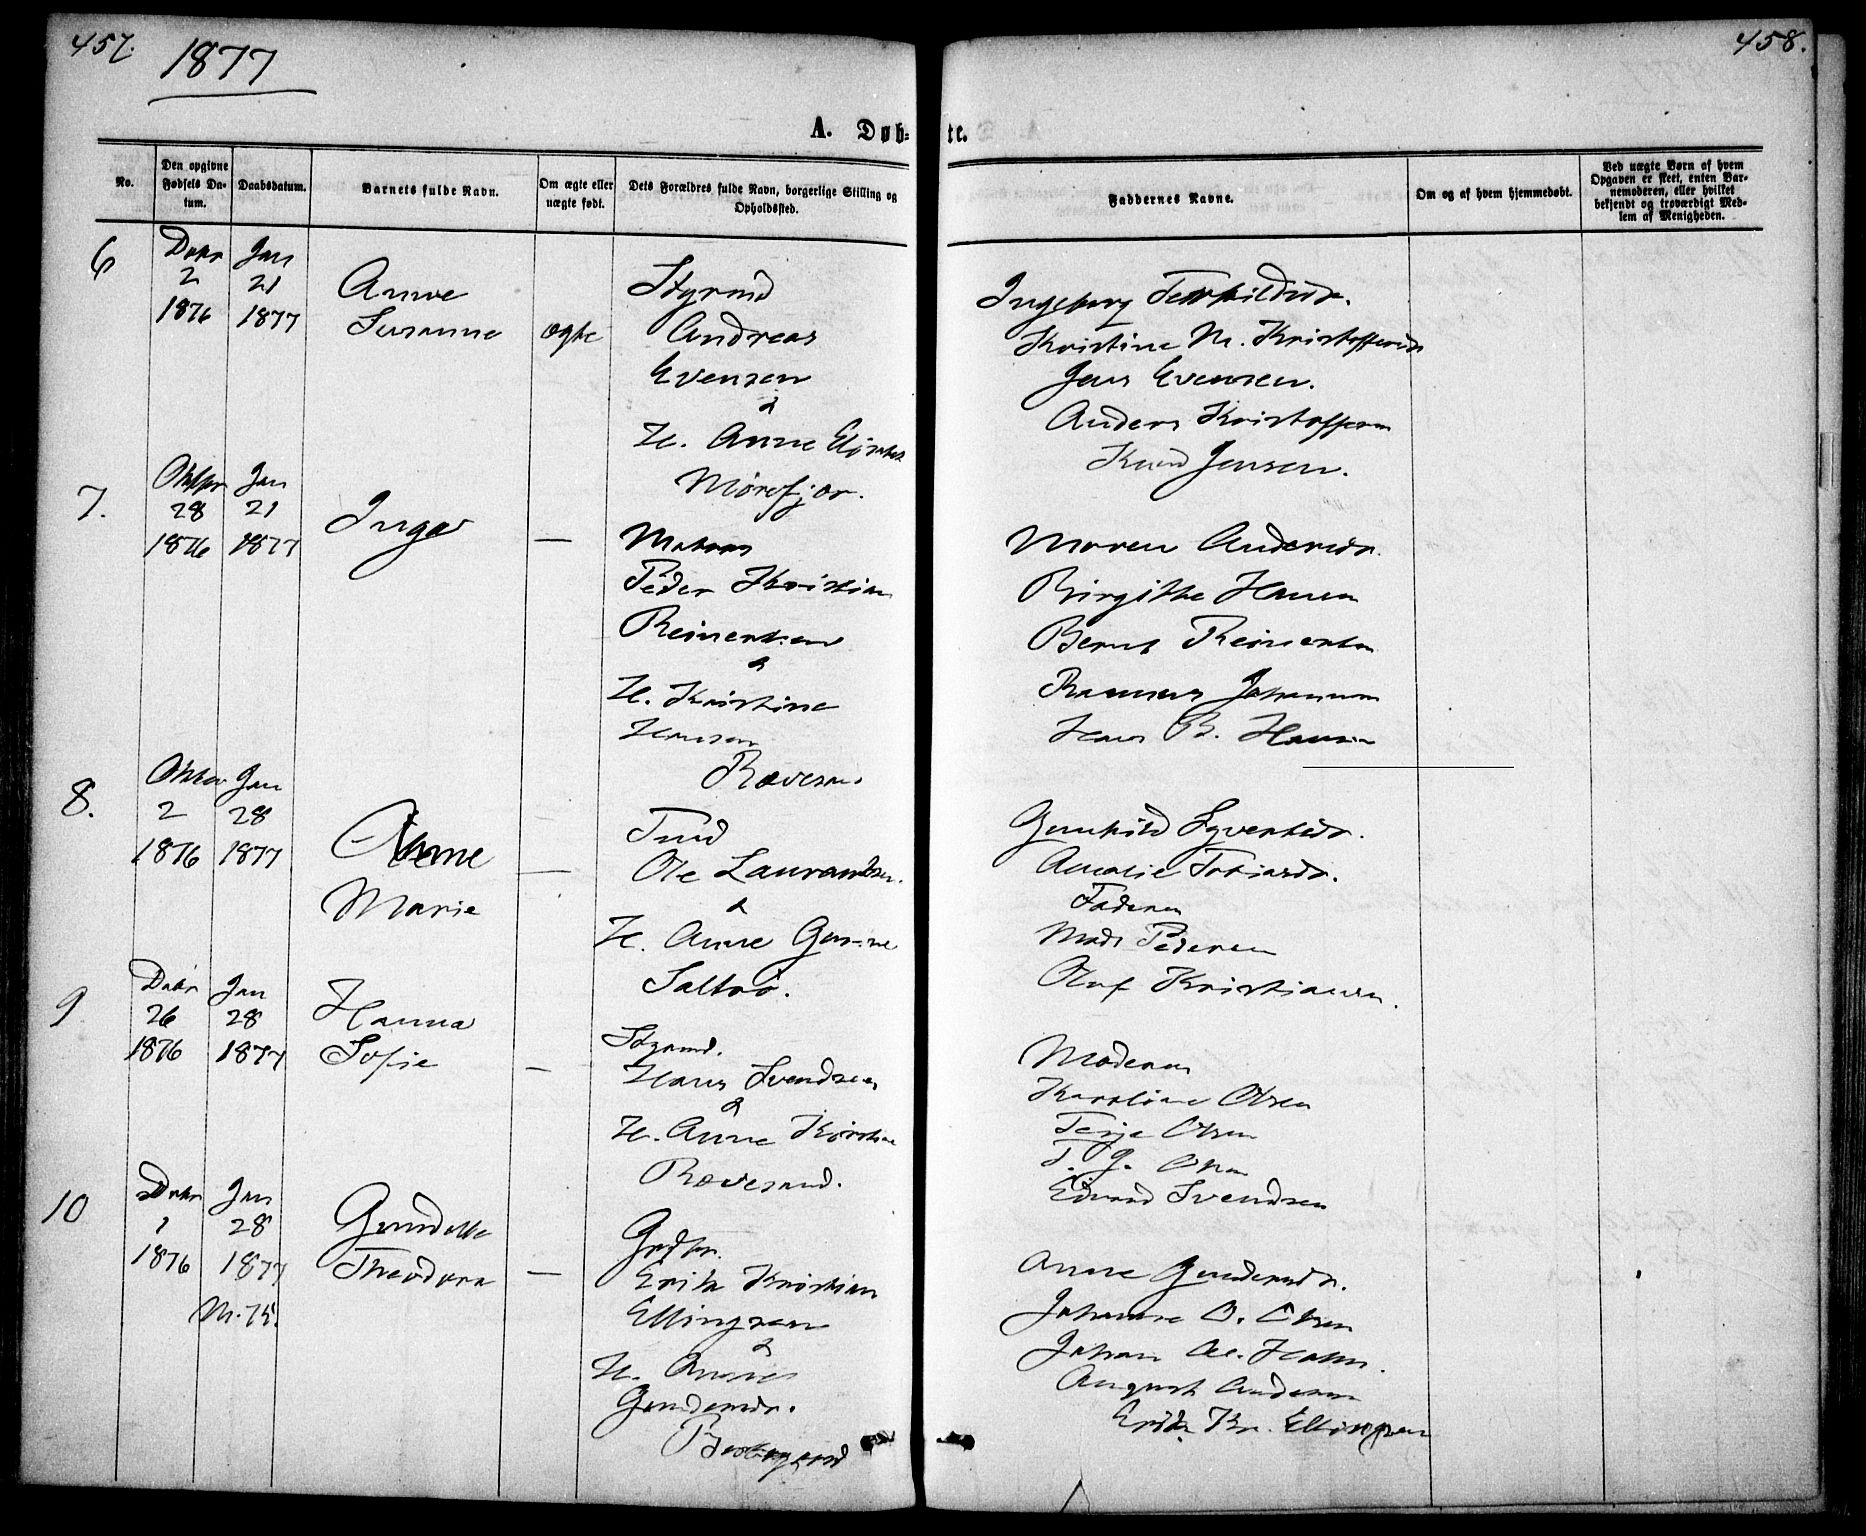 457.
1877
458.
A. Døb-
te.
No.
Den opgivne
Fødsels Da-
tum.
Daabsdatum.
Barnets fulde Navn.
Om ægte eller
uægte født.
Dets Forældres fulde Navn, borgerlige Stilling og
Opholdssted.
Faddernes Navne.
Om og af hvem hjemmedøbt.
Ved uægte Børn af hvem
Opgaven er skeet, enten Bar-
nemoderen, eller hvilket
bekjendt og troværdigt Med-
lem af Menigheden.
6
Decbr
2
1876
Jan
21
1877
Anne
Susanne
ægte
Styrmd
Andreas
Evensen
&
H. Anne
Mørefjær.
Ingeborg Terkildsdr.
Kristine M. Kristoffersdr
Jens Evensen.
Anders Kristoffersen
Knud Jensen.
7.
Oktbr
28
1876
Jan
21
1877
Inga
—
Matros
Peder Kristian
Reinertsen
&
H. Kristine
Hansen
Rævesan
Maren Andersdr.
Birgitte Hansen
Bernt Reinertsen
Rasmus Johannesen
Hans B. Hansen
8.
Oktbr
2
1876
Jan
28
1877
Anne
Marie
—
Tmd
Ole Laurantsen.
&
H. Anne Gurine
Saltrø.
Gunhild Syvertsdr.
Amalie Tobiasdr.
Faderen
Mads Pedersen
Oluf Kristiansen.
9
Decbr
26
1876
Jan
28
1877
Hanna
Sofie
—
Styrmd.
Hans Svendsen
&
H. Anne Kirstine
Rævesand.
Moderen
Karoline Olsen
Terje Olsen
T. G. Olsen
Edvard Svendsen
10
Decbr
1
1876
Jan
28
1877
M. 75.
Gundelle
Theodora
—
Gdbr.
Erik Kristian
Ellingsen
&
H. Anne
Gundersdr.
Anne Gundersdr.
Johanne O. Olsen
Johan A. Holm.
August Andersen
Erik Kr. Ellingsen